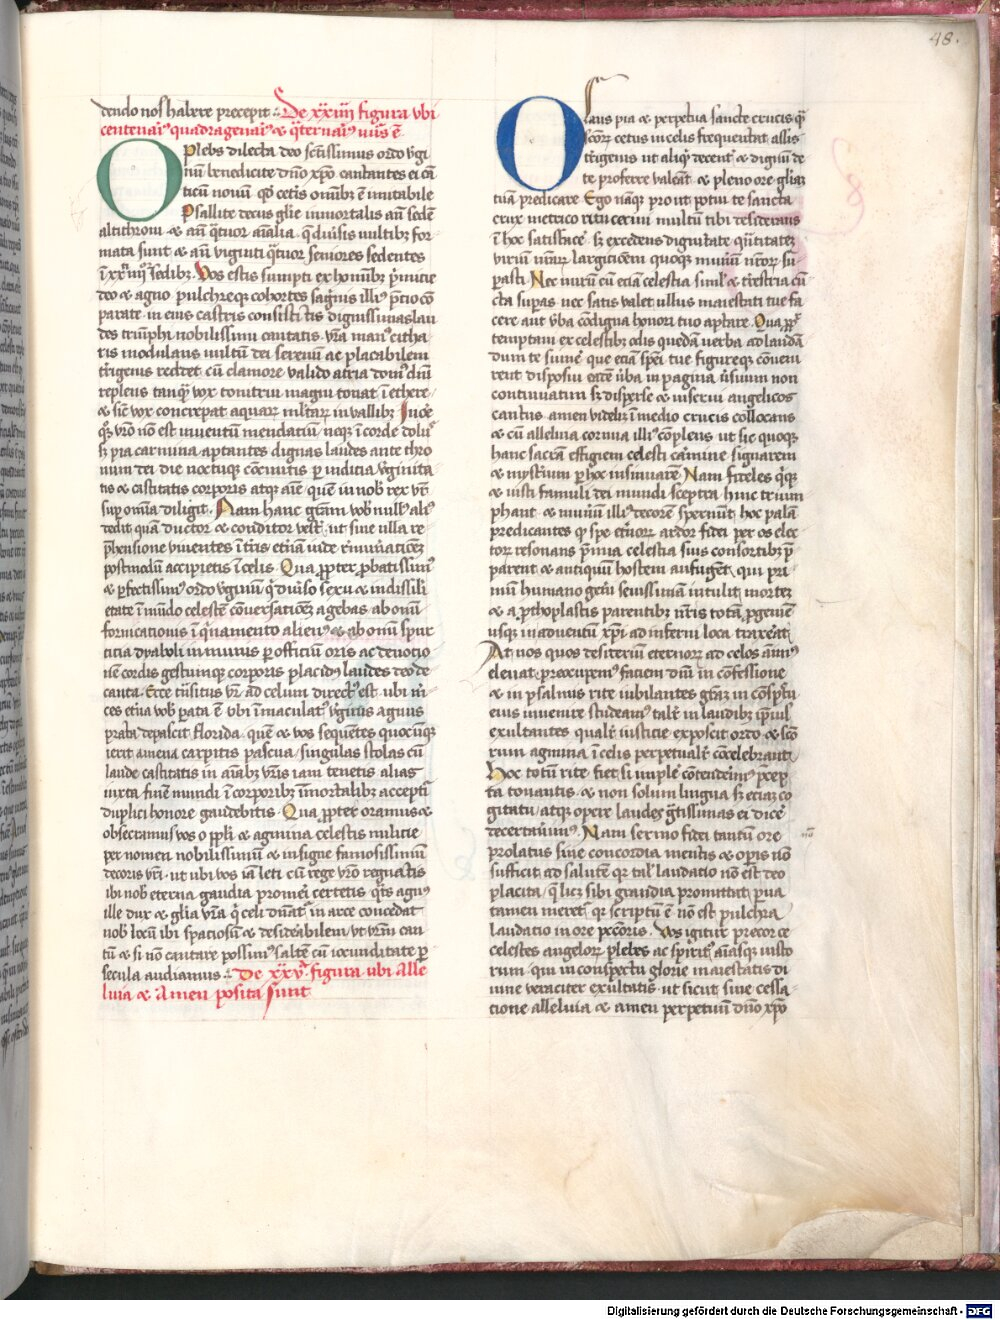 48.
dendo nos habere precepit : De xxiiii figura vbi
centenariꝰ quadragenariꝰ ⁊ q̃ternariꝰ nũs ẽ
O plebs dilecta deo sc̃tissimus ordo v̾gi
nũ benedicite dño xp̃o cantantes ei cã
ticũ nouũ qđ cetis om̃ibꝫ ẽ inmutabile
Psallite decus gl̃ie inmortalis añ sedẽ
altithroni ⁊ añ q̃tuor aĩalia q̃ diuisis uultibꝫ for
mata sunt ⁊ añ viginti q̃tuor seniores sedentes
ĩ xxiiiiᵒʳ sedibꝫ. Vos estis sumpti ex hom̃ibꝫ p̃mitie
deo ⁊ agno pulchreqꝫ cohortes sagĩs illiꝰ p̃cio cõ
parate in eius castris consisti tis dignissimas lau
des triũphi nobilissimi cantatis vr̃a manꝰ citha
ris modulans uultũ dei serenũ ac placabilem
t̾rigenis reddet cũ clamore valido atria domꝰ dñi
repleus tanqᷓ vox tonitrui magni tonat ĩ ethere
⁊ sic̃ vox concrepat aquaꝝ ml̃taꝝ in vallibꝫ In ore
q̃ꝫ vr̃o nõ est inuentũ mendatiũ neqꝫ ĩ corde dolꝰ
sꝫ pia carmina aptantes dignas laudes ante thro
num dei die noctuqꝫ cõcinitis ꝑ indicia v̾ginita
tis ⁊ castitatis corporis atqꝫ aĩe quẽ in nob̾ rex vr̃
suꝑ om̃ia diligit. Nam hanc gr̃am vob̾ nullꝰ aliꝰ
dedit quã ductor ⁊ conditor vest̾ ut sine ulla re
p̾hensione viuentes ĩ t̾ris etnã inde rem̃uat̃icẽꝫ
postmodũ accipietis ĩ celis. Qua ꝓpter ꝓbatissimꝰ
⁊ ꝑfectissimꝰ ordo v̾ginũ q̃ diuiso sexu ⁊ indissili
etate ĩ mũdo celestẽ cõuersatiõẽ agebas ab om̃i
fornicationis ĩ q̃namento alienꝰ ⁊ ab om̃i spur
titia dyaboli in munis ꝑ officiũ oris ac deuotio
nẽ cordis gestumqꝫ corporis placidꝰ laudes deo de
canta. Ecce t̾nsitus vr̃ ad celum directꝰ est ubi m̾
ces etna vob̾ ꝑata ẽ vbi ĩmaculatꝰ v̾ginis agnus
prata depascit florida quẽ ⁊ vos sequẽtes quocũqꝫ
ierit amena carpitis pascua singulas stolas cũ
laude castitatis in aĩabꝫ vr̃is iam tenetis alias
iuxta finẽ mundi ĩ corporibꝫ ĩmortalibꝫ accepti
duplici honore gaudebitis. Qua ꝓpter oramus ⁊
obsecramus vos o pp̃li ⁊ agmina celestis militie
per nomen nobilissimũ ⁊ insigne famosissimũ
decoris vr̃i ut ubi vos iã leti cũ rege vr̃o regnatis
ibi nob̾ eterna gaudia promeri certetis q̃ts agnꝰ
ille dux ⁊ gl̃ia vr̃a q̃ celi dñat̾ in arce concedat
nob̾ locũ ibi spaciosũ ⁊ desiderabilem vt vr̃m can
tũ ⁊ si nõ cantare possimꝰ saltẽ cũ iocunditate ꝑ
secula audiamus : De xxvᵃ figura ubi Alle
luia ⁊ Amen posita sunt
O laus pia ⁊ perpetua sancte crucis q̃
sc̃oꝝ cetus in celis frequentat assis
t̾rigenis ut aliqᷓ decent̾ ⁊ dignũ de
te proferre valeãt ⁊ pleno ore gl̃iaꝫ
tuã predicare Ego nãqꝫ pro ut potui te sancta
crux metrico ritu cecini multũ tibi desiderans
ĩ hoc satisface̾ sꝫ excedens dignitate qũtitateꝫ
viriũ m̃aꝝ largitiõem quoqꝫ munũ nr̃oꝝ su
ꝑasti. Nec mirũ cũ eciã celestia simil̾ ⁊ t̾restria cũ
cta suꝑas nec satis valet ullus maiestati tue fa
cere aut v̾ba cõdigna honori tuo aptare. Qua ꝓpt̾
temptam ex celestibꝫ odis quedã uerba ad laudã
dum te sume̾ que eciã spẽi tue figureqꝫ conueni
rent disposui eadẽ v̾ba in pagina v̾suum non
continuatim sꝫ disperse ⁊ inserui angelicos
cantus amen videlicꝫ ĩ medio crucis collocans
⁊ cũ alleluia cornua illiꝰ cõplens ut sic quoqꝫ
hanc sacrã effigiem celesti carmine signarem
⁊ mysteriũ ꝑ hoc insinuarẽ. Nam fideles q̃qꝫ
⁊ iusti famuli dei mundi sceptra hinc trium
phant ⁊ munũ illiꝰ decorẽ spernũt hoc palã
predicantes qꝫ spe et̾noꝝ ardor fidei per os elec
toꝝ resonans p̾mia celestia suis consortibꝫ p̾
parent ⁊ antiquũ hostem aufugẽt qui pri
mũ humano gen̾i seuissimã intulit mortẽꝫ
⁊ a ꝓthoplastis parentibꝫ nr̃is totã ꝓgeniẽ
usqꝫ in aduentũ xp̃i ad inferni loca traxerat
At nos quos desideriũ eternoꝝ ad celos amicꝰ
eleuat preocupemꝰ faciem dñi in confessione
⁊ in psalmis rite iubilantes gr̃aꝫ in cõspc̃u
eius inuenire studeamꝰ talit̾ in laudibꝫ ipsiul
exultantes qualit̾ iusticie exposcit ordo ⁊ sc̃o
rum agmina ĩ celis perpetualit̾ cõcelebrant
Hoc totũ rite fiet si implẽ cõtendeĩmꝰ p̾cep
ta tonantis ⁊ non solum lingua sꝫ eciaꝫ co
gitatu atqꝫ opere laudes gr̃tissimas ei dice̾
decertauimꝰ. Nam sermo fidei tantũ ore
prolatus sine concordia mentis ⁊ op̾is nõ
sufficit ad salutẽm qꝫ tal̾ laudatio nõ est deo
placita q̃ licꝫ sibi grandia promittat parua
tamen meret̾ qꝫ scriptũ ẽ nõ est pulchra
laudatio in ore pc̃coris. Vos igitur precor ce
celestes angeloꝝ plebes ac spiritꝰ aĩasqꝫ iusto
rum qui in conspectu glorie maiestatis di
uine veraciter exultatis ut sicut sine cessa
cione alleluia ⁊ amen perpetuũ dño xp̃o
Digitalisierung gefördert durch die Deutsche Forschungsgemeinschaft - DFG